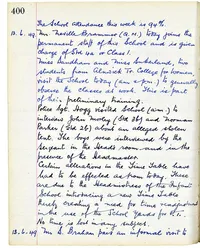 400
The School attendance this week is 90%.
13.6.49. Mrs. Neville Brammer (a.m.) today joins the
permanent staff of this School and is given
charge of Std 4A or Class 1.
Misses Windham and Miss Sutherland, two
students from Alnwick Tr. College for Women,
visit the School today (a.m. & p.m.) to generally
observe the classes at work. This is part
of their preliminary training.
Police Sgt. Hogg visited School (a.m.) to
interview John Morley (Std 2B) and Norman
Parker (Std 2B) about an alleged stolen
tent. The boys were interviewed by the
sergeant in the Head's room and in the
presence of the Headmaster.
Certain alterations in the Time Table have
had to be effected as from today. These
are due to the Headmistress of the Infant
School introducing a new Time Table
thereby creating a need for time readjustment
in the use of the School Yards for P.T.
No time is lost in any subject.
13.6.49 Mr. Graham paid an informal visit to